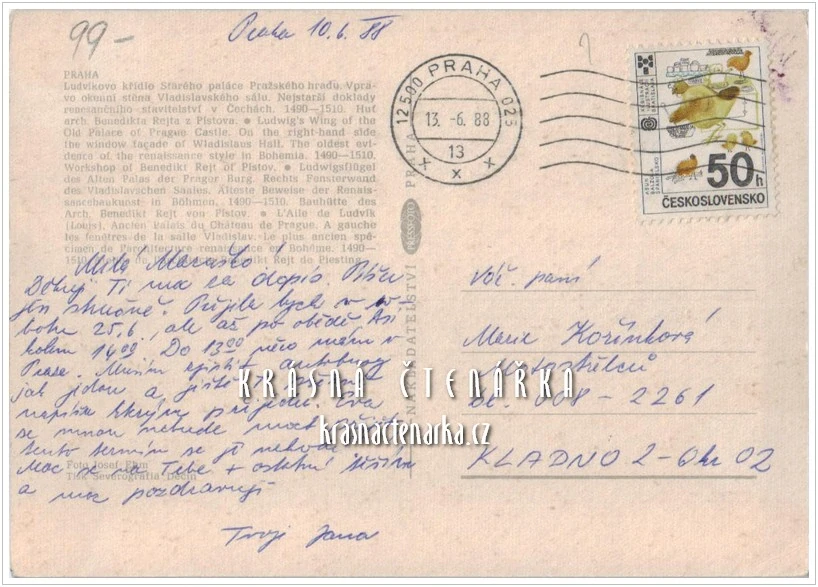 99-
Praha 10.6.88
PRAHA
Ludvíkovo křídlo Starého paláce Pražského hradu. Vpra-
vo okenní stěna Vladislavského sálu. Nejstarší doklady
renesančního stavitelství v Čechách. 1490—1510. Huť
arch. Benedikta Rejta z Pístova. ● Ludwig's Wing of the
Old Palace of Prague Castle. On the right-hand side
the window façade of Wladislaus Hall. The oldest evi-
dence of the renaissance style in Bohemia. 1490—1510.
Workshop of Benedikt Rejt of Pístov. ● Ludwigsflügel
des Alten Palas der Prager Burg. Rechts Fensterwand
des Vladislavschen Saales. Älteste Beweise der Renais-
sancebaukunst in Böhmen. 1490—1510. Bauhütte des
Arch. Benedikt Rejt von Pístov. ● L'Aile de Ludvík
(Louis). Ancien Palais du Château de Prague. A gauche
les fenêtres de la salle Vladislav. Le plus ancien spé-
cimen de l'architecture renaissance en Bohême. 1490—
1510. Benedikt Rejt de Piesting.
Milá Maruško!
Děkuji Ti moc za dopis. Píši
jen stručně. Přijela bych v so-
botu 25.6, ale až po obědě. Asi
kolem 14.00. Do 13.00 něco mám v
Praze. Musím zjistit autobusy
jak jedou a ještě Ti
napíšu kterým přijedu. Eva
se mnou nebude moct přijet
tento termín se jí nehodí.
Moc se na Tebe + ostatní těším
a moc pozdravuji
Tvoje Jana
Foto Josef Ehm
Tisk Severografia Děčín
NAKLADATELSTVÍ
PRESSFOTO
PRAHA
12500 PRAHA 025
13. -6. 88
13
x x x
50h
ČESKOSLOVENSKO
Váž. paní
Marie Kořínková
Mitostřelců
bl. 008 - 2261
KLADNO 2 - Okr 02
KRÁSNÁ ČTENÁŘKA
krasnactenarka.cz